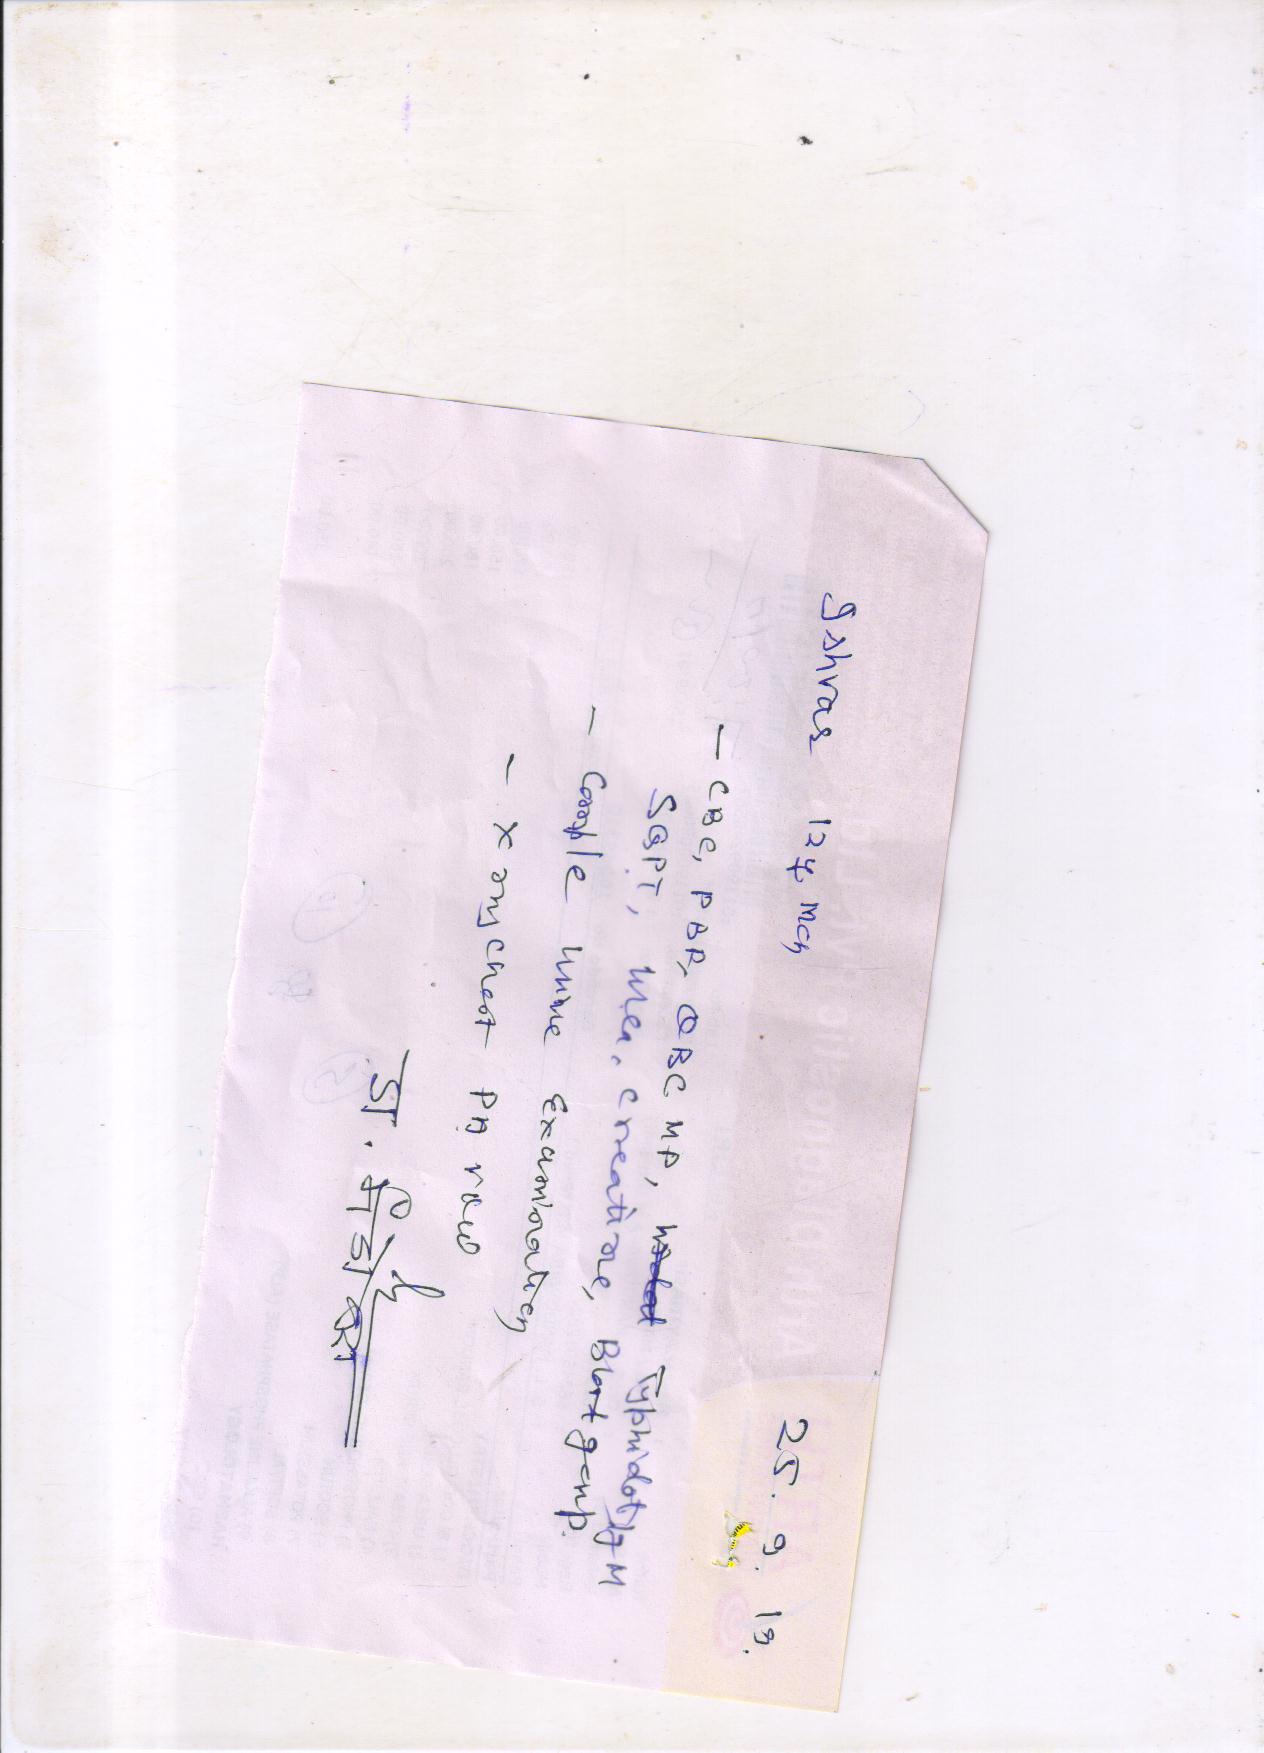 25.9.19.
Ishvar 12y, Mch
— CBC, PBF, QBC MP, Typhidot IgM
SGPT, Urea, creatine, Blood group.
— Comple Urine Examination
— X ray chest PA view
डा.